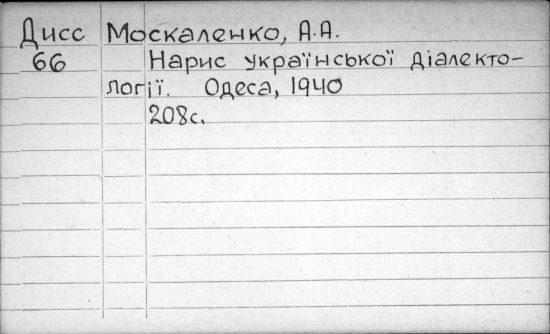 Дисс Москаленко, А.А.
66 Нарис української діалекто-
логії. Одеса, 1940
208с.